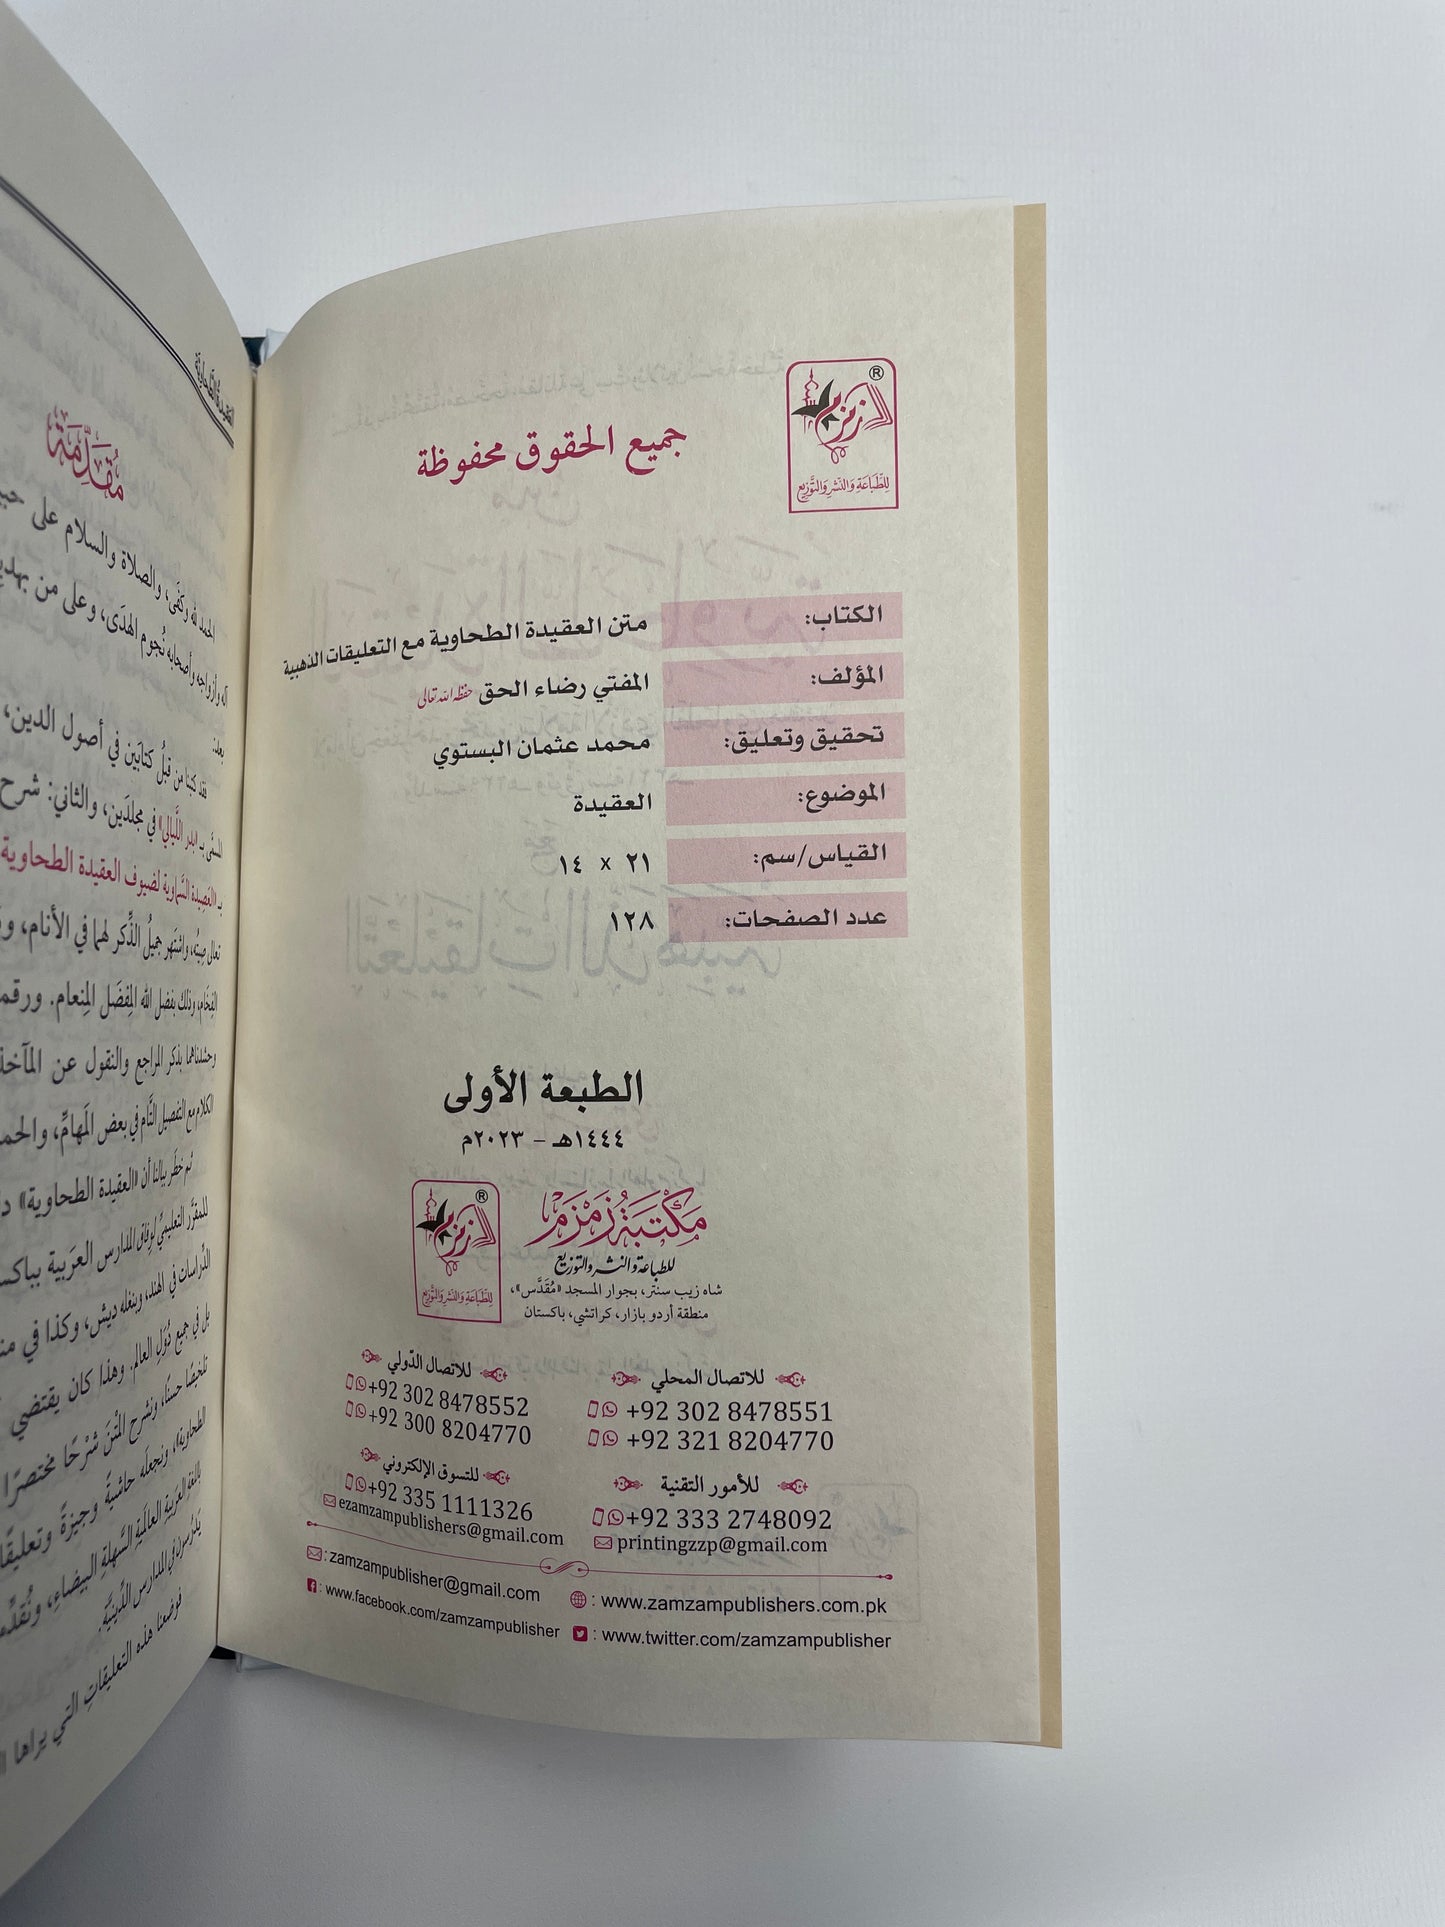 ®
زمزم
للطباعة والنشر والتوزيع
جميع الحقوق محفوظة
الكتاب: متن العقيدة الطحاوية مع التعليقات الذهبية
المؤلف: المفتي رضاء الحق حفظه الله تعالى
تحقيق وتعليق: محمد عثمان البستوي
الموضوع: العقيدة
القياس/سم: ٢١ x ١٤
عدد الصفحات: ١٢٨
الطبعة الأولى
١٤٤٤هـ - ٢٠٢٣م
®
زمزم
للطباعة والنشر والتوزيع
مَكْتَبَةُ زَمْزَمْ
للطباعة والنشر والتوزيع
شاه زيب سنتر، بجوار المسجد «مُقَدَّس»،
منطقة أردو بازار، كراتشي، باكستان
للاتصال المحلي
+92 302 8478551
+92 321 8204770
للاتصال الدّولي
+92 302 8478552
+92 300 8204770
للأمور التقنية
+92 333 2748092
printingzzp@gmail.com
للتسوق الإلكتروني
+92 335 1111326
ezamzampublishers@gmail.com
: zamzampublisher@gmail.com
: www.zamzampublishers.com.pk
: www.facebook.com/zamzampublisher
: www.twitter.com/zamzampublisher
العقيدة الطحاوية
مُقَدِّمَة
الحمد لله وكفَى، والصلاة والسلام على
آله وأزواجه وأصحابه نُجوم الهدَى، وعلى من
بعد:
فقد كتبنا من قبلُ كتابَين في أصول الدين،
المسمَّى بـ «بدر اللَّيالي» في مجلدَين، والثاني: شرح
بـ «العَصِيدة السَّماوية لضيوف العقيدة الطحاوية
تعالى صِيتُه، واشتَهر جميلُ الذِّكر لهما في الأنام،
الفِخَام، وذلك بفضل الله المِفضَل المِنعام. ورقمنا
وحشدناهما بذكر المراجع والنقول عن
الكلام مع التفصيل التَّام في بعض المَهامِّ،
ثم خطَر ببالنا أن «العقيدة الطحاوية»
للمقرَّر التعليميِّ لوِفاق المدارس العرَبية
الدِّراسات في الهند، وبنغله ديش، وكذا في
بل في جميع دُوَلِ العالم. وهذا كان يقتضي
تلخيصًا حسنًا، ونشرح المَتْنَ شَرْحًا مختصرًا
الطحاوية»، ونجعلَه حاشيةً وجيزةً
باللغة العرَبيةِ العالَميةِ السَّهلةِ البيضاءِ،
يَدْرُسون في المدارس الدِّينيَّة.
فوضعنا هذه التعليقاتِ التي يراها